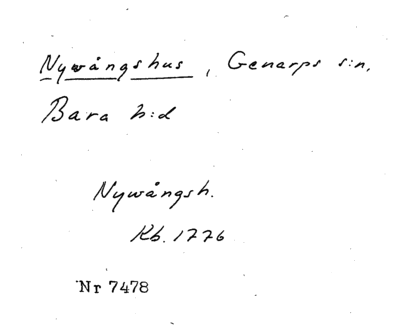 Nywångshus, Genarps s:n,
Bara h:d
Nywångsh.
Kb. 1776
Nr 7478